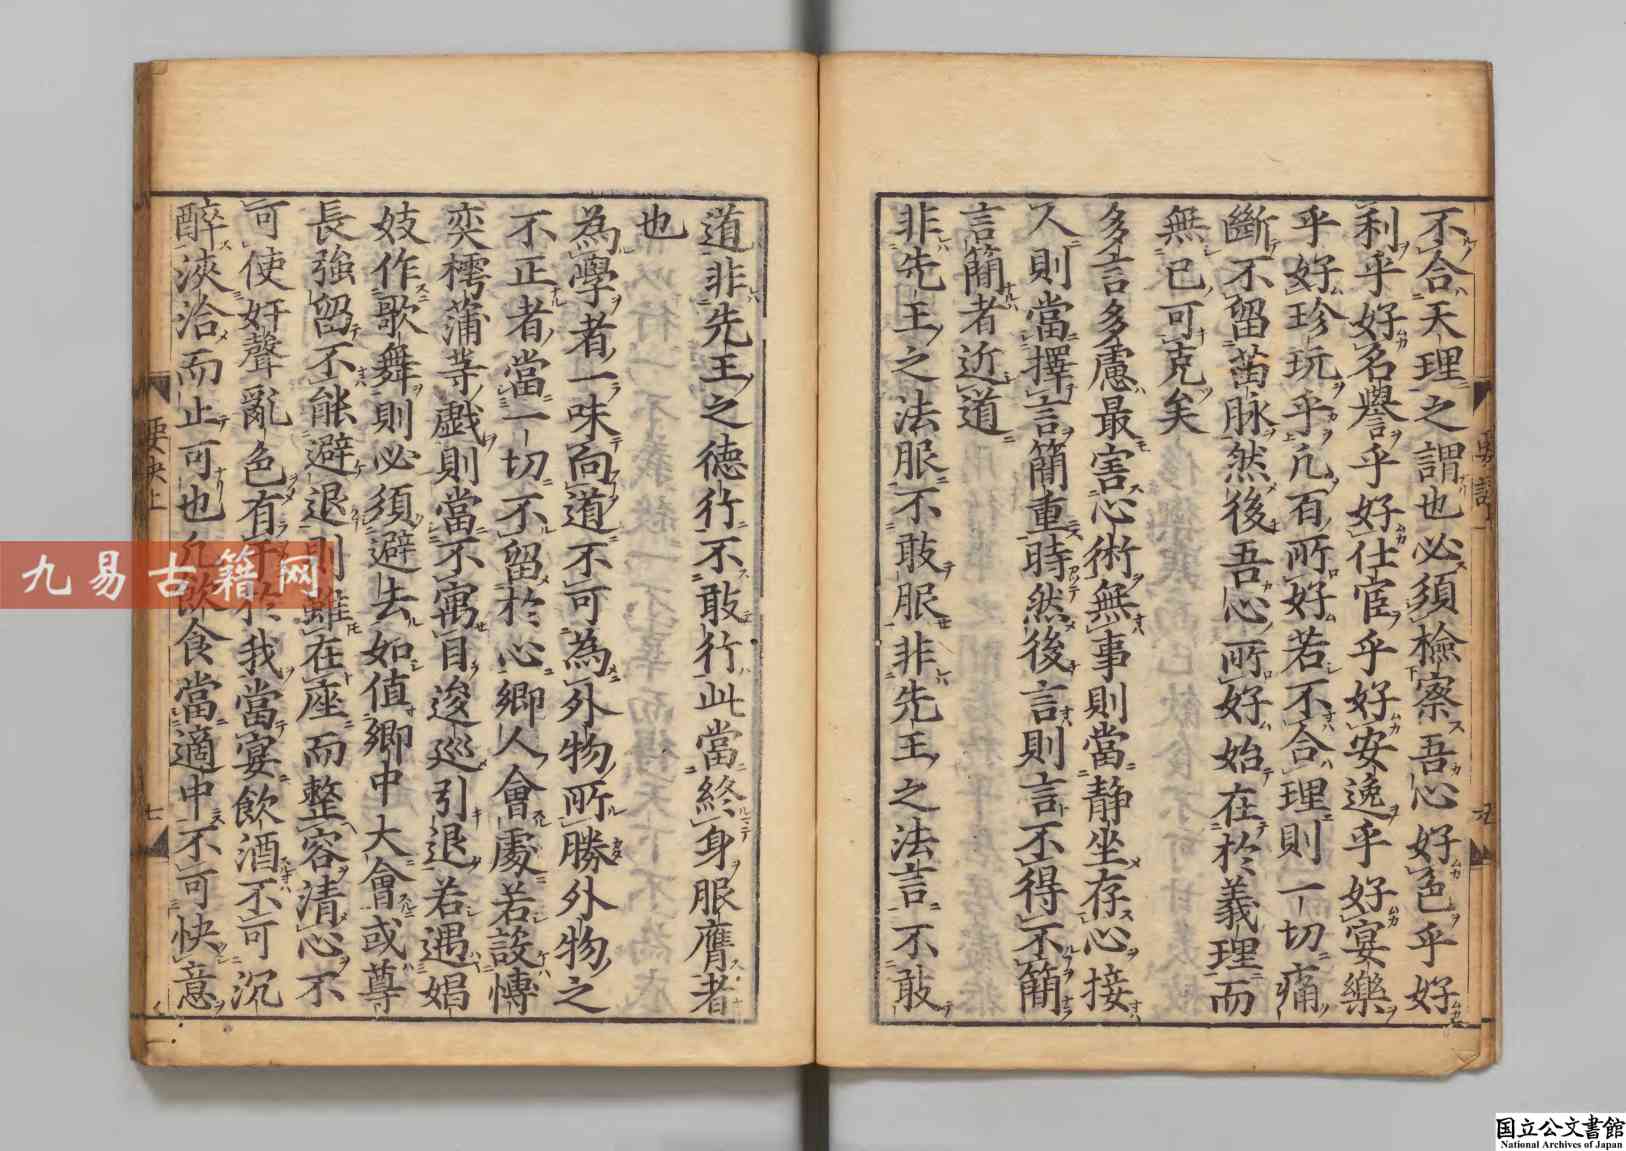 不合天理之謂也必須檢察吾心好色乎好
利乎好名譽乎好仕宦乎好安逸乎好宴樂
乎好珍玩乎凢百所好若不合理則一切痛
斷不留苗脉然後吾心所好始在於義理而
無已可克矣
多言多慮最害心術無事則當静坐存心接
人則當擇言簡重時然後言則言不得不簡
言簡者近道
非先王之法服不敢服非先王之法言不敢
道非先王之德行不敢行此當終身服膺者
也
為學者一味向道不可為外物所勝外物之
不正者當一切不留於心鄉人會處若設慱
奕樗蒲等戲則當不寓目逡巡引退若遇娼
妓作歌舞則必須避去如值鄉中大會或尊
長強留不能避退則雖在座而整容清心不
可使奸聲亂色有於我當宴飲酒不可沉
醉浹洽而止可也凢飲食當適中不可快意
要訣上
七
九易古籍网
国立公文書館
National Archives of Japan